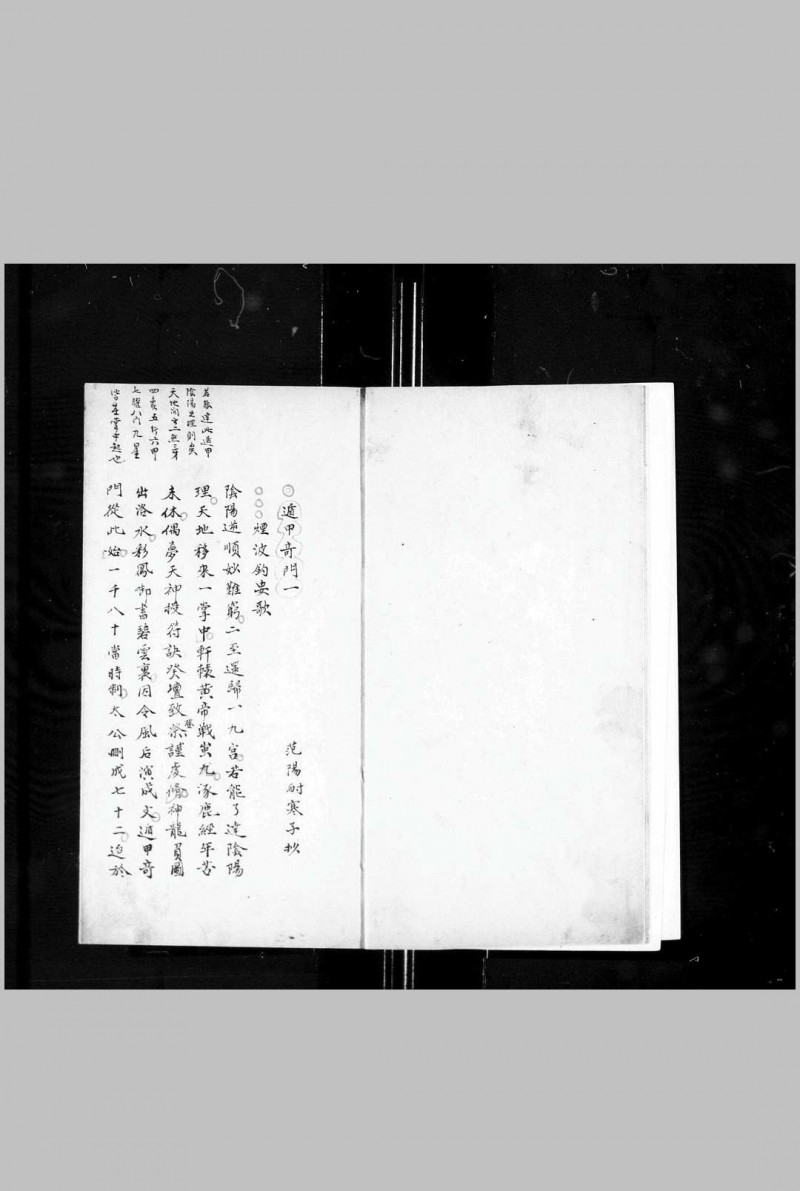 遁甲奇門一
范陽耐寒子抄
煙波釣叟歌
陰陽逆順妙難窮二至還歸一九宮若能了達陰陽
理天地移來一掌中軒轅黃帝戰蚩尤涿鹿經年苦
未休偶夢天神授符訣登壇致祭謹虔脩神龍負圖
出洛水彩鳳啣書碧雲裏因令風后演成文遁甲奇
門從此始一千八十當時制太公刪成七十二迨於
若能達此遁甲
陰陽之理則
天地間
四 五行六甲
七曜八門九星
皆在掌中起也